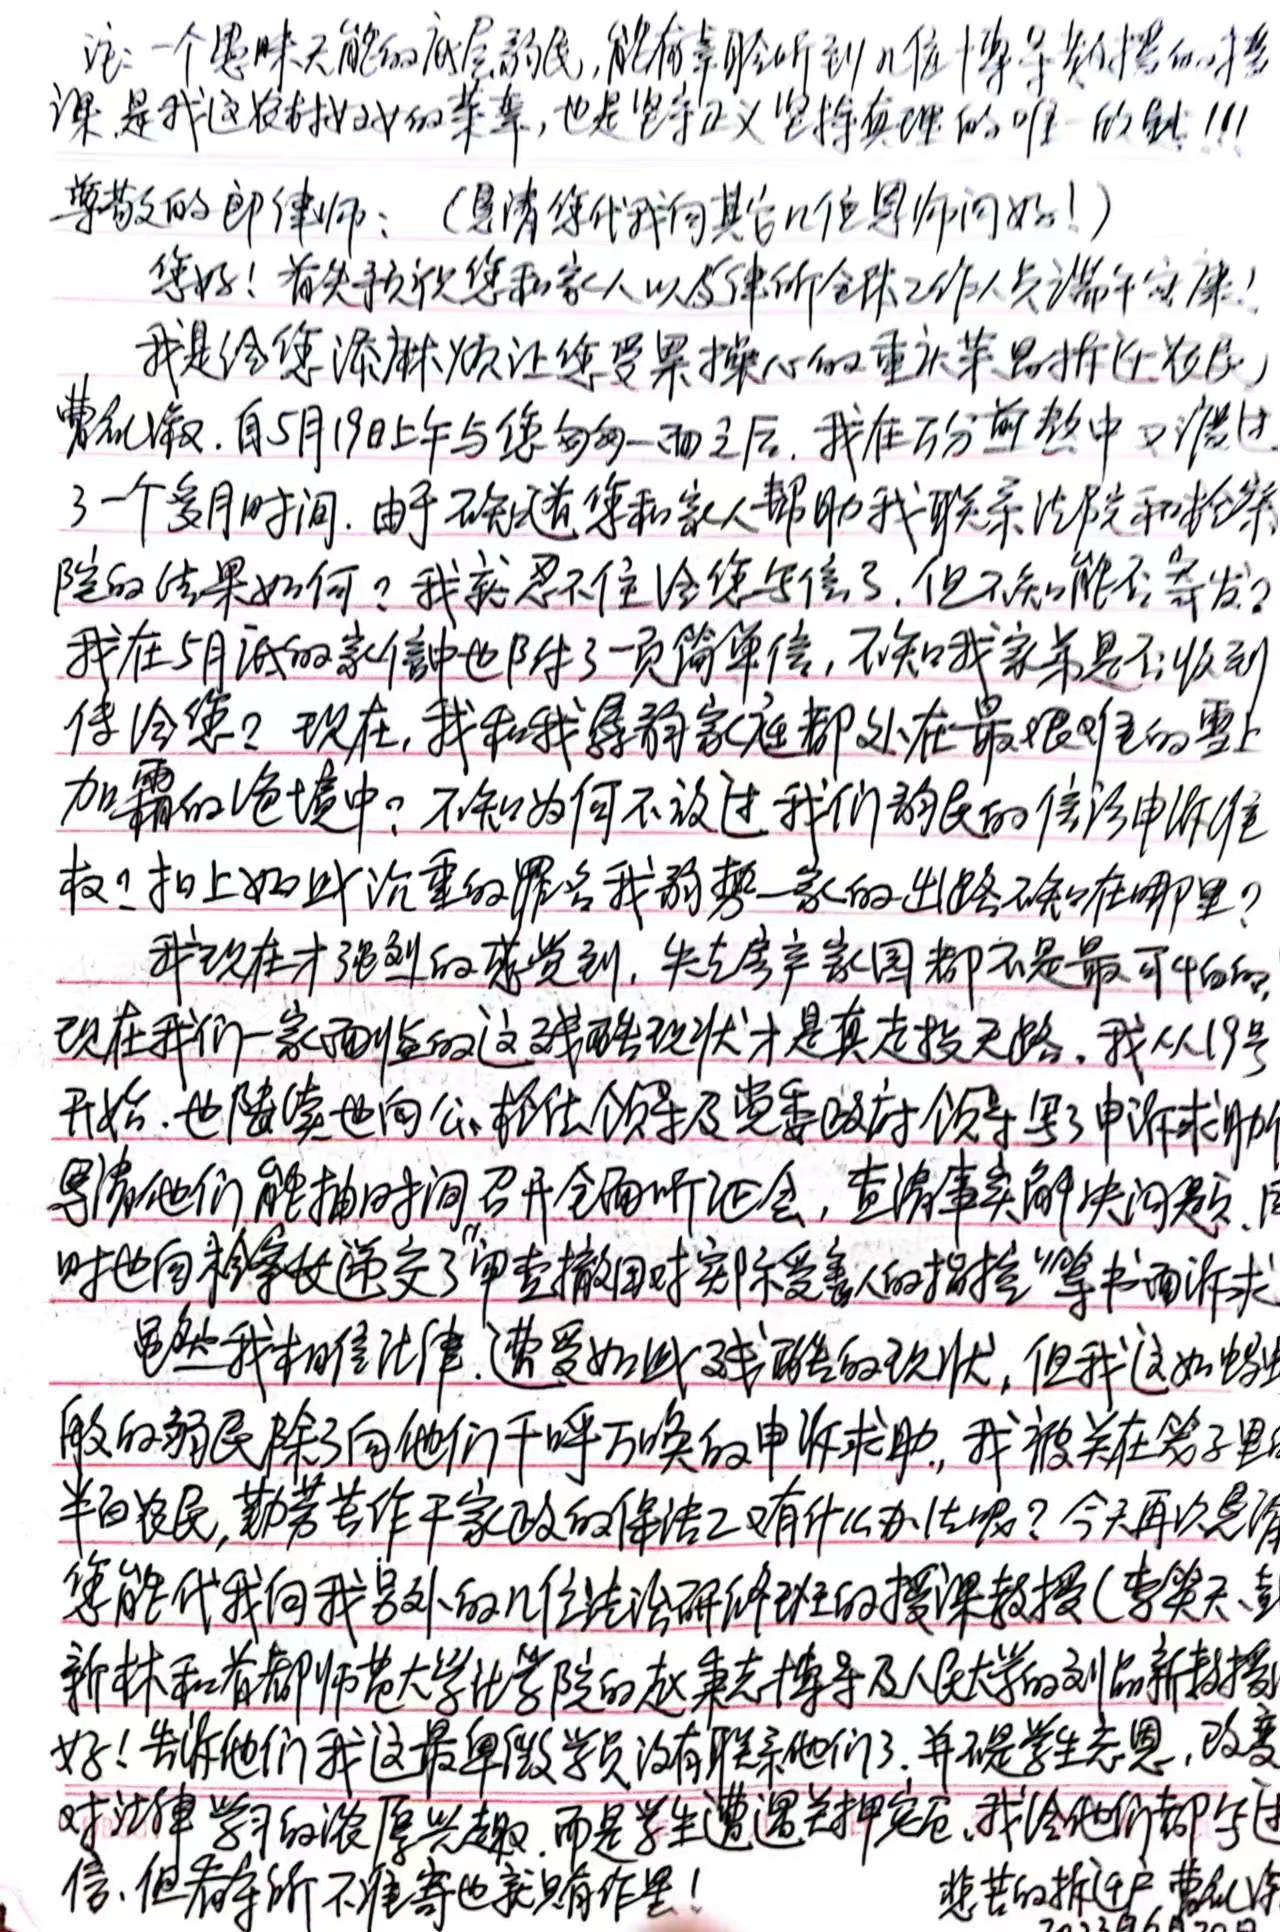 注：一个愚昧无能的底层弱民，能有幸聆听到几位博导教授的授
课，是我这农村妇女的荣幸，也是坚守正义坚持真理的唯一的
尊敬的郎律师：（恳请您代我向其它几位恩师问好！）
您好！首先预祝您和家人以及律所全体工作人员端午安康！
我是给您添麻烦让您受累操心的重庆 拆迁农民
曹 淑．自5月19日上午与您匆匆一面之后．我在百分煎熬中又渡过
了一个多月时间．由于不知道您和家人帮助我联系法院和检察
院的结果如何？我就忍不住给您写信了．但不知能否寄发？
我在5月底的家信中也附了一页简单信，不知我家弟是否收到
传给您？现在，我和我孱弱家庭都处在最艰难的雪上
加霜的绝境中？不知为何不放过我们弱民的信访申诉维
权？扣上如此沉重的罪名我弱势一家的出路不知在哪里？
我现在才强烈的感觉到，失去房产家园都不是最可怕的，
现在我们一家面临的这残酷现状才是真走投无路．我从19号
开始．也陆续也向公、检法领导及党委政府领导写了申诉求助
恳请他们能抽时间召开全面听证会，查清事实解决问题、同
时也向检察长递交了“审查撤回对实际受害人的指控”等书面诉求
虽然我相信法律．遭受如此残酷的现状，但我这如蝼
般的弱民除了向他们千呼万唤的申诉求助，我被关在笼子里的
半百农民，勤劳苦作干家政的保洁工又有什么办法呢？今天再次恳请
您能代我向我另外的几位法治研修班的授课教授（李笑天、彭
新林和首都师范大学法学院的赵秉志博导及人民大学的刘品新教授
好！告诉他们我这最卑微学员没有联系他们了．并不是学生忘恩，改变
对法律学习的浓厚兴趣．而是学生遭遇关押 ．我给他们都写过
信．但看守所不准寄也就只有作罢！
悲苦的拆迁户 曹